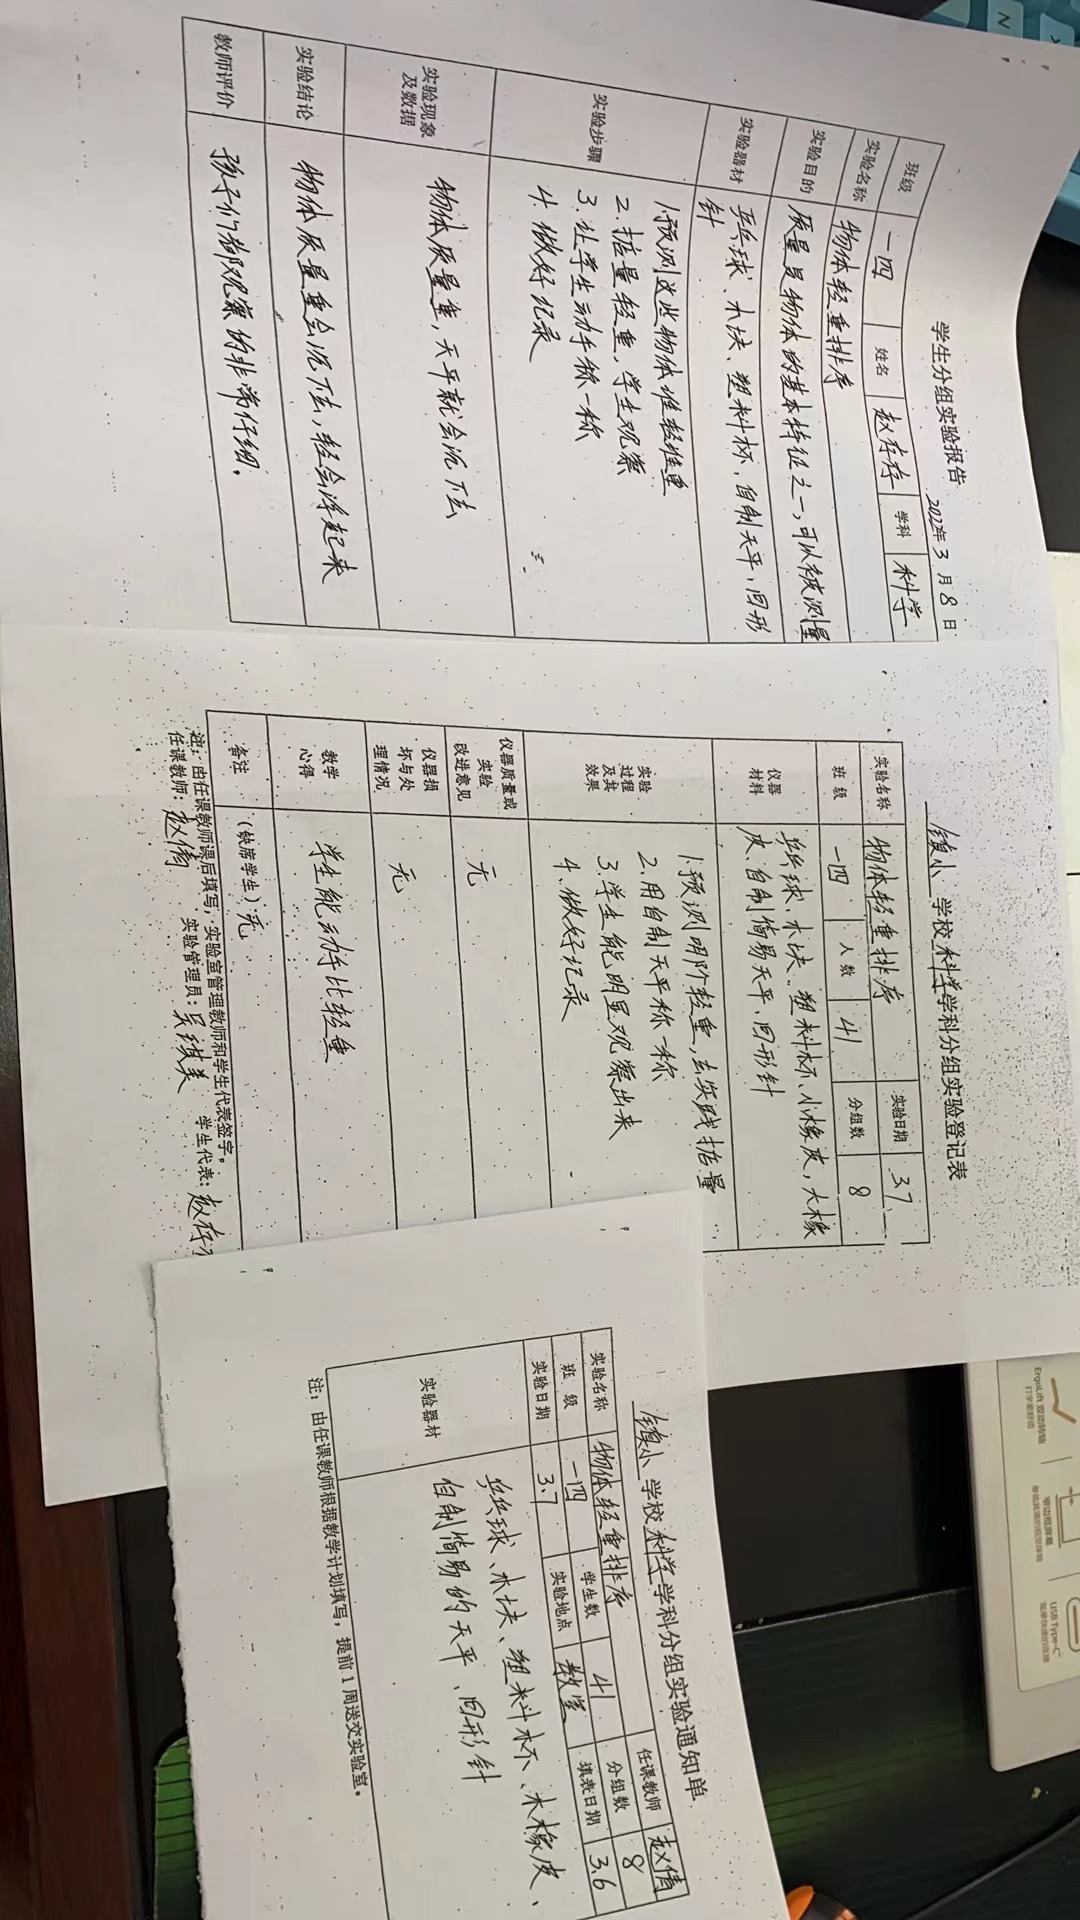 学生分组实验报告
2022年3月8日
班级 一四 姓名 赵存存 学科 科学
实验名称 物体轻重排序
实验目的 质量是物体的基本特征之一,可以被测量
实验器材 乒乓球、木块、塑料杯、自制天平、回形
针
实验步骤
1.预测这些物体谁轻谁重
2.掂量轻重,学生观察
3.让学生动手称一称
4.做好记录
实验现象
及数据
物体质量重,天平就会沉下去
实验结论 物体质量重会沉下去,轻会浮起来
教师评价 孩子们都观察的非常仔细。
镇小 学校 科学 学科分组实验登记表
实验名称 物体轻重排序 实验日期 3.7
班 级 一四 人数 41 分组数 8
仪器
材料
乒乓球、木块、塑料杯、小橡皮,大橡
皮、自制简易天平、回形针
实验
过程
及其
效果
1.预测明阶轻重,去实践掂量
2.用自制天平称一称
3.学生能明显观察出来
4.做好记录
仪器质量或
实验
改进意见
无
仪器损
坏与处
理情况
无
教学
心得
学生能动手比轻重
备注 (缺席学生)无
注:由任课教师课后填写,实验室管理教师和学生代表签字。
任课教师:赵倩 实验管理员:吴琪美 学生代表:赵存
镇小 学校 科学 学科分组实验通知单
实验名称 物体轻重排序 任课教师 赵倩
班 级 一四 学生数 41 分组数 8
实验日期 3.7 实验地点 教室 填表日期 3.6
实验器材
乒乓球、木块、塑料杯、大橡皮、
自制简易的天平、回形针
注:由任课教师根据教学计划填写,提前1周送交实验室。
ErgoLift 双动转轴
打字更舒适
窄边框屏幕
USB Type-C
N